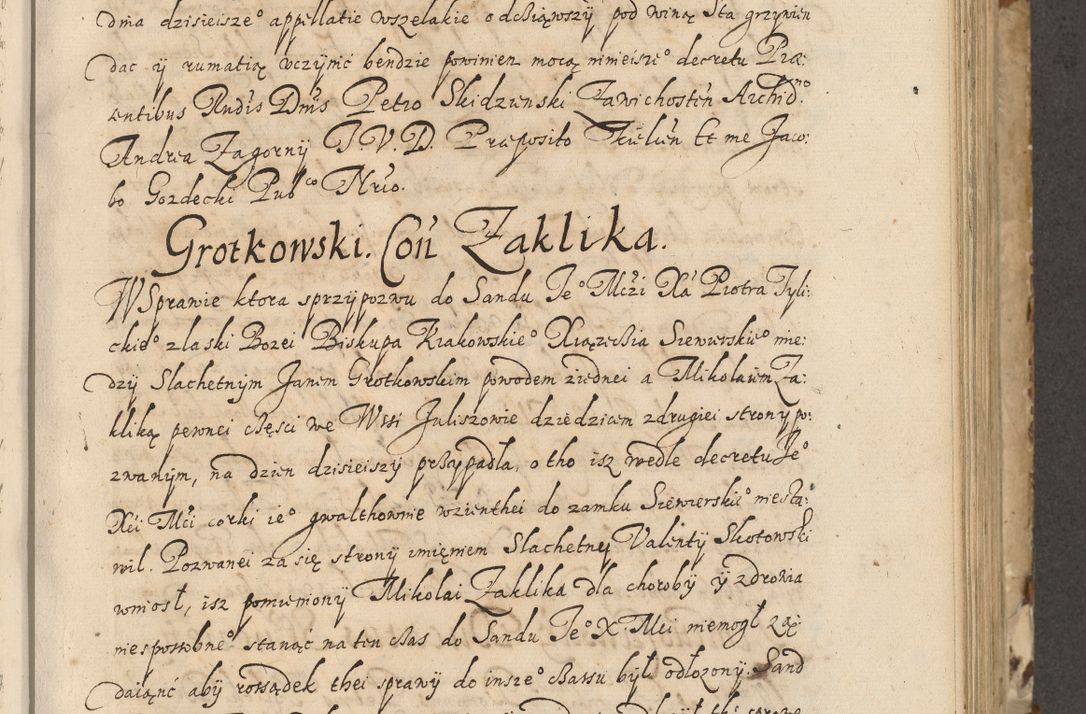 dma dzisieisze° appellatie wszelakie odcsiąwszÿ pod winą Sta grzÿwien
dac ÿ rumatią vczÿnić bendzie powinien mocą ninieisze° decretu Præ:
sentibus Rndis Dnis Petro Skidzienski Zawichosten Archid.no
Andrea Zagornÿ J. V. D. Præposito Kielcen Et me Jaco:
bo Gozdecki Publco Nrio.
Grotkowski. Con Zaklika.
W Sprawie ktora sprzÿpozwu do Sandu Je° Mczi Xa Piotra Tÿli:
ckie° zlaski Bozei Biskupa Krakowskie° Xiązęcsia Siewierskie° mie:
dzÿ Slachetnÿm Janem Grotkowskim powodem ziednei a Mikolaiem Za:
kliką pewnei csęsci we Wsi Juliszowie dziedzicem zdrugiei stronÿ po:
zwanÿm, na dzien dzisieiszÿ przÿpadła, o tho isz wedle decretu Je°
Xci Mci corki ie° gwalthownie wzienthei do zamku Siewierskie° niesta:
wil. Pozwanei za się stronÿ imięniem Slachetnÿ Valentÿ Skotowski
wniosł, isz pomienionÿ Mikolai Zaklika dla chorobÿ ÿ zdrowia
niesposobne° stanąć na ten csas do Sandu Je° X. Mci niemogł żą:
daiąnć abÿ rossądek thei sprawÿ do insze° csassu bÿł odłozonÿ. Sand